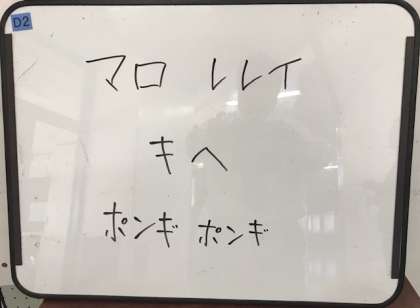 D2
マロ レレイ
キヘ
ポンギポンギ